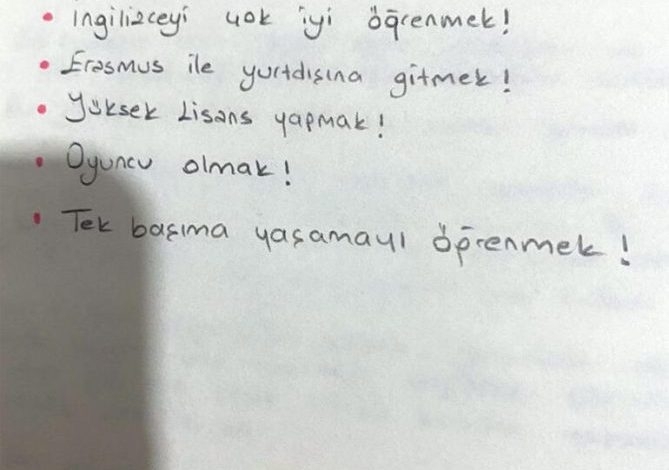 • İngilizceyi çok iyi öğrenmek!
• Erasmus ile yurtdışına gitmek!
• Yüksek Lisans yapmak!
• Oyuncu olmak!
• Tek başıma yaşamayı öğrenmek!